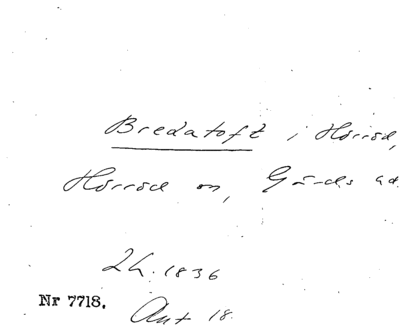 Bredatoft i Hörröd,
Hörröd sn, Gärds hd
Lh. 1836
Nr 7718.
Akt 18.